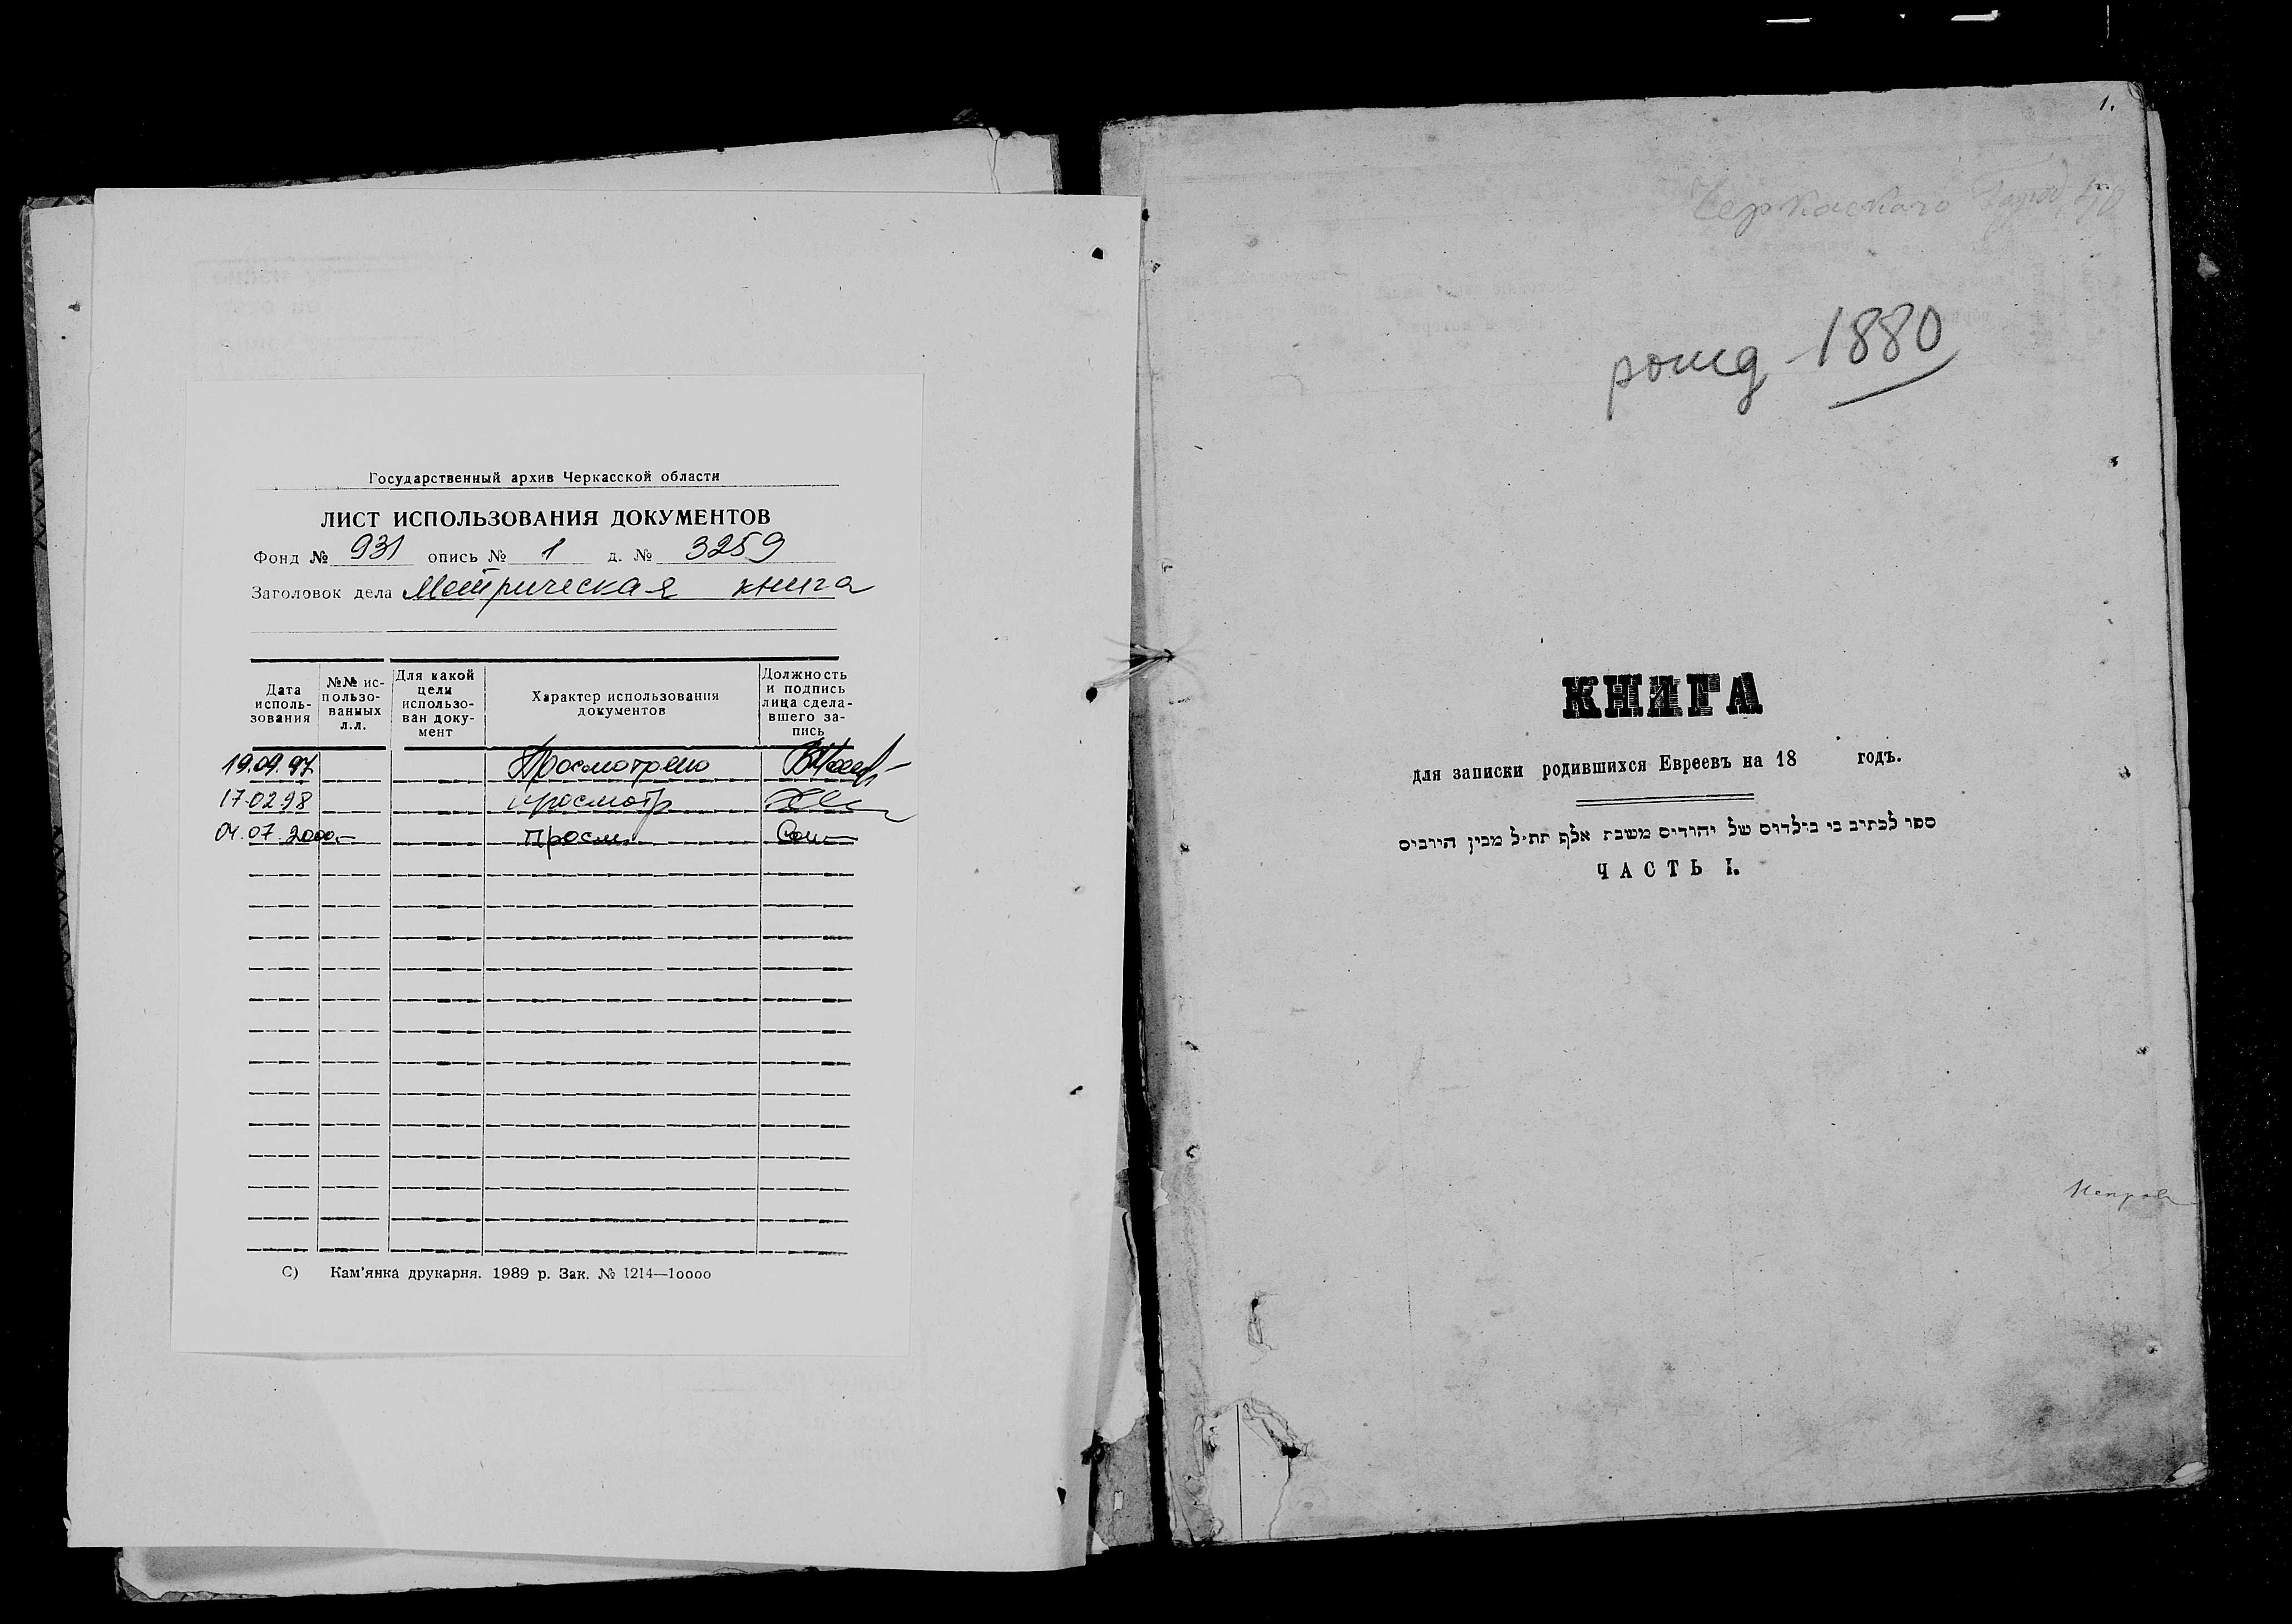 Государственный архив Черкасской области
ЛИСТ ИСПОЛЬЗОВАНИЯ ДОКУМЕНТОВ
Фонд № 931 опись № 1 д. № 3259
Заголовок дела Метрическая книга
Дата исполь-зования
№№ ис-пользо-ванных л.л.
Для какой цели использо-ван доку-мент
Характер использования документов
Должность и подпись лица сдела-вшего за-пись
19.09.97 Просмотрено
17.02.98 просмотр
04.07.2000 Просм
С) Кам'янка друкарня. 1989 р. Зак. № 1214—10000
1.
Черкаскаго
рожд 1880
КНИГА
для записки родившихся Евреевъ на 18 годъ.
ספר לכתיב בי של יהודים משבת אלף תת״ל מבין היוביס
ЧАСТЬ I.